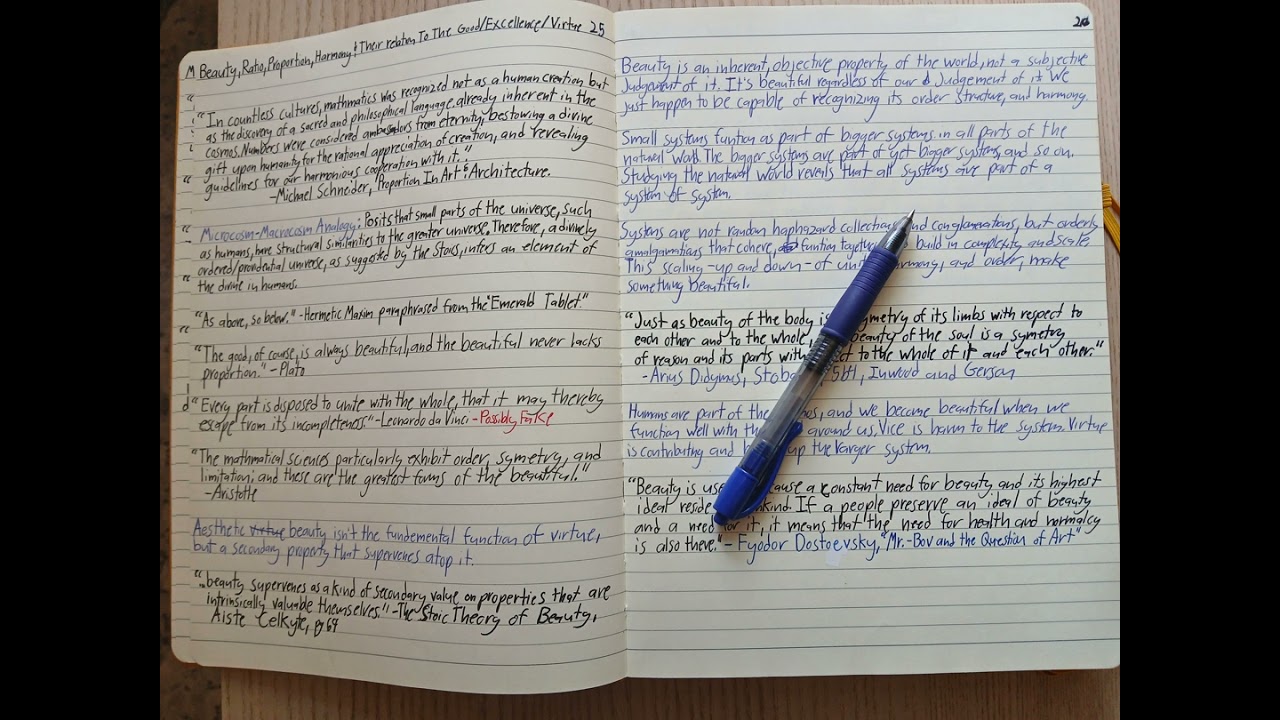 M Beauty, Ratio, Proportion, Harmony & Their relation To The Good/Excellence/Virtue 25
"In countless cultures, mathmatics was recognized not as a human creation but
as the discovery of a sacred and philosophical language already inherent in the
cosmos. Numbers were considered ambassadors from eternity, bestowing a divine
gift upon humanity for the rational appreciation of creation, and revealing
guidelines for our harmonious cooperation with it."
-Michael Schneider, Proportion In Art & Architecture.
Microcosm-Macrocosm Analogy: Posits that small parts of the universe, such
as humans, have structural similarities to the greater universe. Therefore, a divinely
ordered/providential universe, as suggested by the Stoics, infers an element of
the divine in humans.
"As above, so below." -Hermetic Maxim paraphrased from the "Emerald Tablet."
"The good, of course, is always beautiful, and the beautiful never lacks
proportion." -Plato
"Every part is disposed to unite with the whole, that it may thereby
escape from its incompleteness" -Leonardo da Vinci -Possibly Fake
"The mathmatical sciences particularly exhibit order, symetry, and
limitation; and these are the greatest forms of the beautiful."
-Aristotle
Aesthetic virtue beauty isn't the fundemental function of virtue,
but a secondary property that supervenes atop it.
"...beauty supervenes as a kind of secondary value on properties that are
intrinsically valuable themselves." -The Stoic Theory of Beauty,
Aiste Celkyte, pg 69
26
Beauty is an inherent, objective property of the world, not a subjective
judgement of it. It's beautiful regardless of our judgement of it. We
just happen to be capable of recognizing its order structure, and harmony.
Small systems funtion as part of bigger systems in all parts of the
natural world. The bigger systems are part of yet bigger systems, and so on.
Studying the natural world reveals that all systems are part of a
system of system.
Systems are not random haphazard collections and conglomerations, but orderly
amalgamations that cohere, funtion together build in complexity and scale.
This scaling -up and down -of harmony, and order, make
something beautiful.
"Just as beauty of the body is symetry of its limbs with respect to
each other and to the whole, beauty of the soul is a symetry
of reason and its parts with to the whole of it and each other."
-Arius Didymus, 5b1, Inwood and Gerson
Humans are part of the and we become beautiful when we
function well with the around us. Vice is harm to the system. Virtue
is contributing and up the larger system.
"Beauty is a constant need for beauty and its highest
ideal If a people preserve an ideal of beauty
and a need for it, it means that the need for health and normalcy
is also there." -Fyodor Dostoevsky, "Mr.-Bov and the Question of Art"